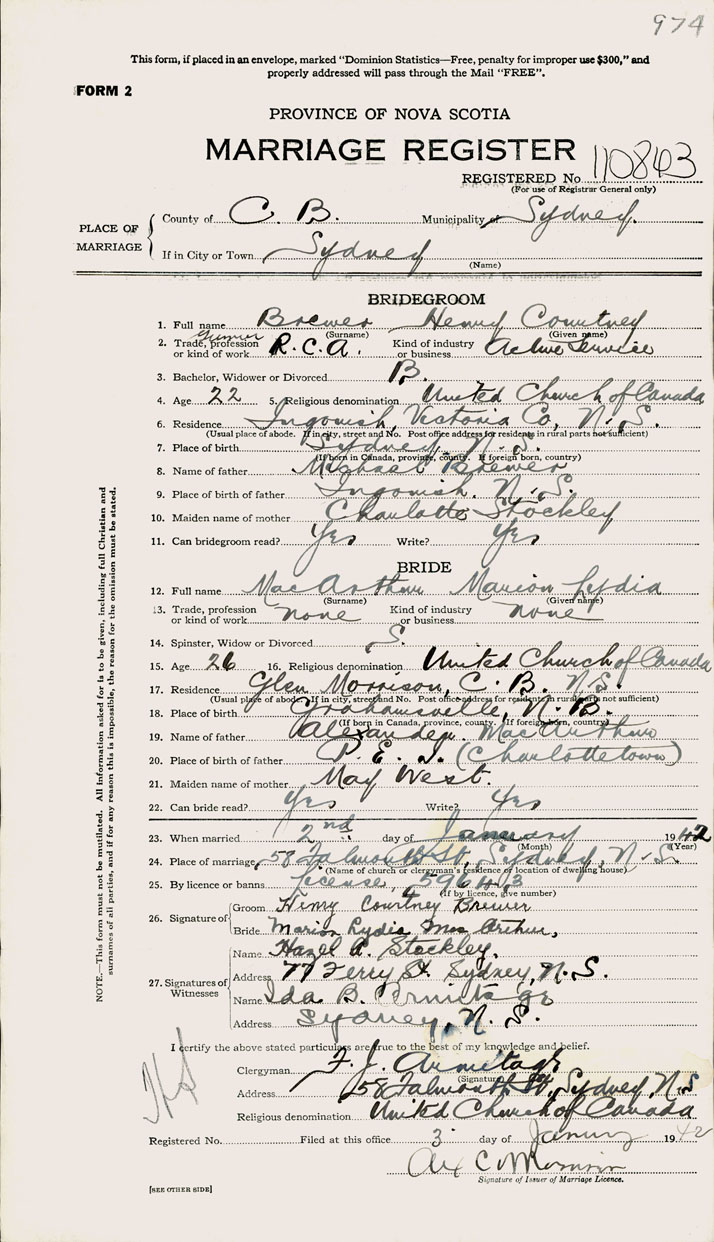 974
This form, if placed in an envelope, marked "Dominion Statistics—Free, penalty for improper use $300," and
properly addressed will pass through the Mail "FREE".
FORM 2
PROVINCE OF NOVA SCOTIA
MARRIAGE REGISTER
REGISTERED No. 110843
(For use of Registrar General only)
PLACE OF MARRIAGE
County of C. B. Municipality of Sydney.
If in City or Town Sydney
(Name)
BRIDEGROOM
1. Full name Brewer Henry Courtney
(Surname) (Given name)
2. Trade, profession or kind of work Gunner R.C.A. Kind of industry or business Active Service
3. Bachelor, Widower or Divorced B.
4. Age 22 5. Religious denomination United Church of Canada
6. Residence Ingonish, Victoria Co, N.S.
(Usual place of abode. If in city, street and No. Post office address for residents in rural parts not sufficient)
7. Place of birth Sydney, N.S.
(If born in Canada, province, county. If foreign born, country)
8. Name of father Michael Brewer
9. Place of birth of father Ingonish. N.S.
10. Maiden name of mother Charlotte Stockley
11. Can bridegroom read? Yes Write? Yes
BRIDE
12. Full name MacArthur Marion Lydia
(Surname) (Given name)
13. Trade, profession or kind of work none Kind of industry or business none
14. Spinster, Widow or Divorced S.
15. Age 26 16. Religious denomination United Church of Canada
17. Residence Glen Morrison, C. B. N.S.
(Usual place of abode. If in city, street and No. Post office address for residents in rural parts not sufficient)
18. Place of birth N. B.
(If born in Canada, province, county. If foreign born, country)
19. Name of father Alexander MacArthur
20. Place of birth of father P. E. I. (Charlottetown)
21. Maiden name of mother May West.
22. Can bride read? Yes Write? Yes
23. When married 2nd day of January 1942
(Month) (Year)
24. Place of marriage 58 Falmouth St, Sydney, N.S.
(Name of church or clergyman's residence or location of dwelling house)
25. By licence or banns license,
(If by licence, give number)
26. Signature of
Groom Henry Courtney Brewer
Bride Marion Lydia Mac Arthur,
27. Signatures of Witnesses
Name Hazel A. Stockley.
Address 77 Ferry St. Sydney, N.S.
Name Ida B. Armitage
Address Sydney, N.S.
I certify the above stated particulars are true to the best of my knowledge and belief.
Clergyman F. J. Armitage
(Signature)
Address 58 Falmouth St, Sydney, N.S
Religious denomination United Church of Canada
Registered No. Filed at this office 3 day of January 1942
Signature of Issuer of Marriage Licence.
[SEE OTHER SIDE]
NOTE.—This form must not be mutilated. All information asked for is to be given, including full Christian and
surnames of all parties, and if for any reason this is impossible, the reason for the omission must be stated.